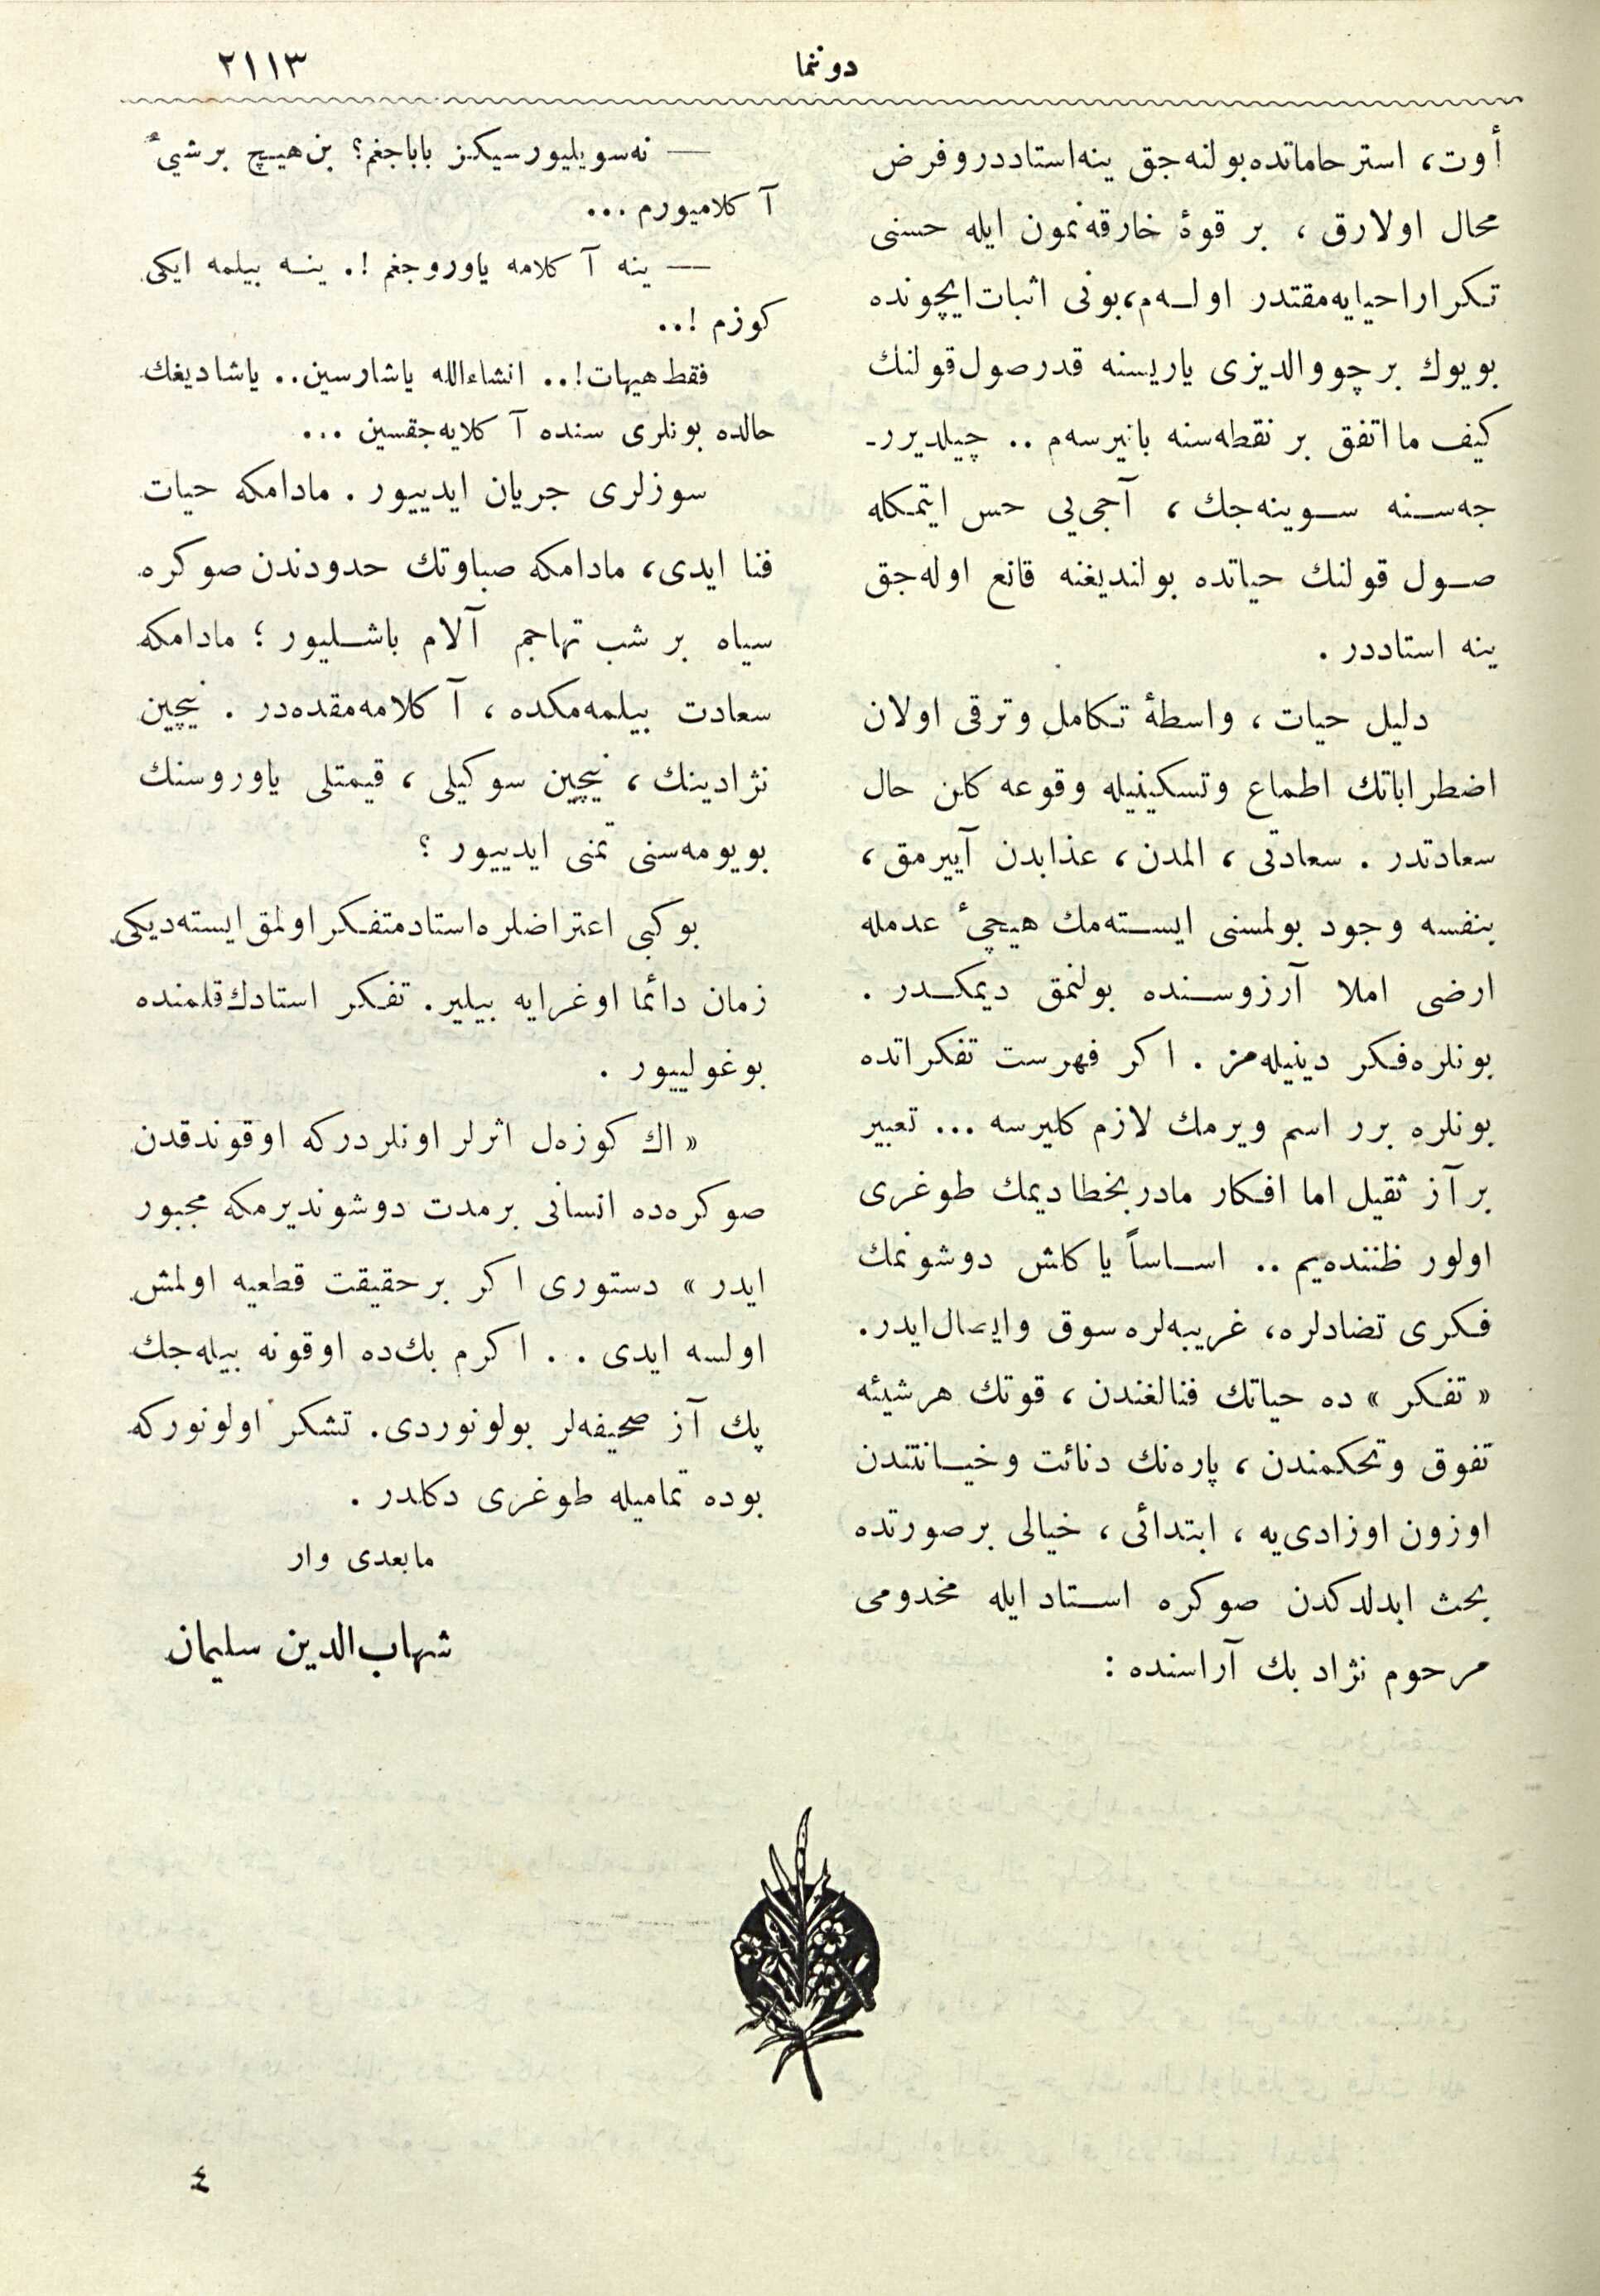 دوننما
٢١١٣
أوت، استرحاماتده بولنه‌جق ينه استاددر وفرض
محال اولارق ، بر قوۀ خارقه‌نمون ايله حسنى
تكرار احيايه مقتدر اولـه‌م، بونى اثبات ايچون‌ده
بويوك بر چووالديزى ياريسنه قدر صول قولنك
كيف ما اتفق بر نقطه‌سنه باتيرسه‌م .. چيلديرر-
جه‌سـنه سـوينه‌جك ، آجى‌يى حس ايتمكله
صـول قولنك حياتده بولنديغنه قانع اوله‌جق
ينه استاددر .
دليل حيات ، واسطۀ تكامل وترقى اولان
اضطراباتك اطماع وتسكينيله وقوعه كلن حال
سعادتدر . سعادتى ، المدن ، عذابدن آييرمق ،
بنفسه وجود بولمسنى ايسـته‌مك هيچىٔ عدمله
ارضى املا آرزوسـنده بولنمق ديمكـدر .
بونلره فكر دينيله‌مز . اكر فهرست تفكراتده
بونلره برر اسم ويرمك لازم كليرسه ... تعبير
بر آز ثقيل اما افكار مادربخطا ديمك طوغرى
اولور ظننده‌يم .. اسـاساً ياكلش دوشونمك
فكرى تضادلره، غريبه‌لره سوق وايصال ايدر.
« تفكر » ده حياتك فنالغندن ، قوتك هرشيئه
تفوق وتحكمندن ، پاره‌نك دنائت وخيـانتندن
اوزون اوزادى‌يه ، ابتدائى ، خيالى برصورتده
بحث ايدلدكدن صوكره اسـتاد ايله مخدومى
مرحوم نژاد بك آراسنده :
— نه‌سويليورسيكز باباجغم؟ بن هيـچ برشيىٔ
آكلاميورم ...
— ينه آكلامه ياوروجغم !. ينـه بيلمه ايكى
كوزم !..
فقط هيهات!.. انشاءالله ياشارسين.. ياشاديغك
حالده بونلرى سنده آكلايه‌جقسين ...
سوزلرى جريان ايدييور . مادامكه حيات
فنا ايدى، مادامكه صباوتك حدودندن صوكره
سياه بر شب تهاجم آلام باشـليور ؛ مادامكه
سعادت بيلمه‌مكده ، آكلامه‌مقده‌در . نيچين
نژادينك ، نيچين سوكيلى ، قيمتلى ياوروسنك
بويومه‌سنى تمنى ايدييور ؟
بوكبى اعتراضلره استاد متفكر اولمق ايسته‌ديكى
زمان دائما اوغرايه بيلير. تفكر استادك قلمنده
بوغولييور .
« اك كوزه‌ل اثرلر اونلردركه اوقوندقدن
صوكره‌ده انسانى برمدت دوشونديرمكه مجبور
ايدر » دستورى اكر برحقيقت قطعيه اولمش
اولسه ايدى . . اكرم بك‌ده اوقونه بيله‌جك
پك آز صحيفه‌لر بولونوردى. تشكر اولونوركه
بوده تماميله طوغرى دكلدر .
مابعدى وار
شهاب‌الدين سليمان
٤